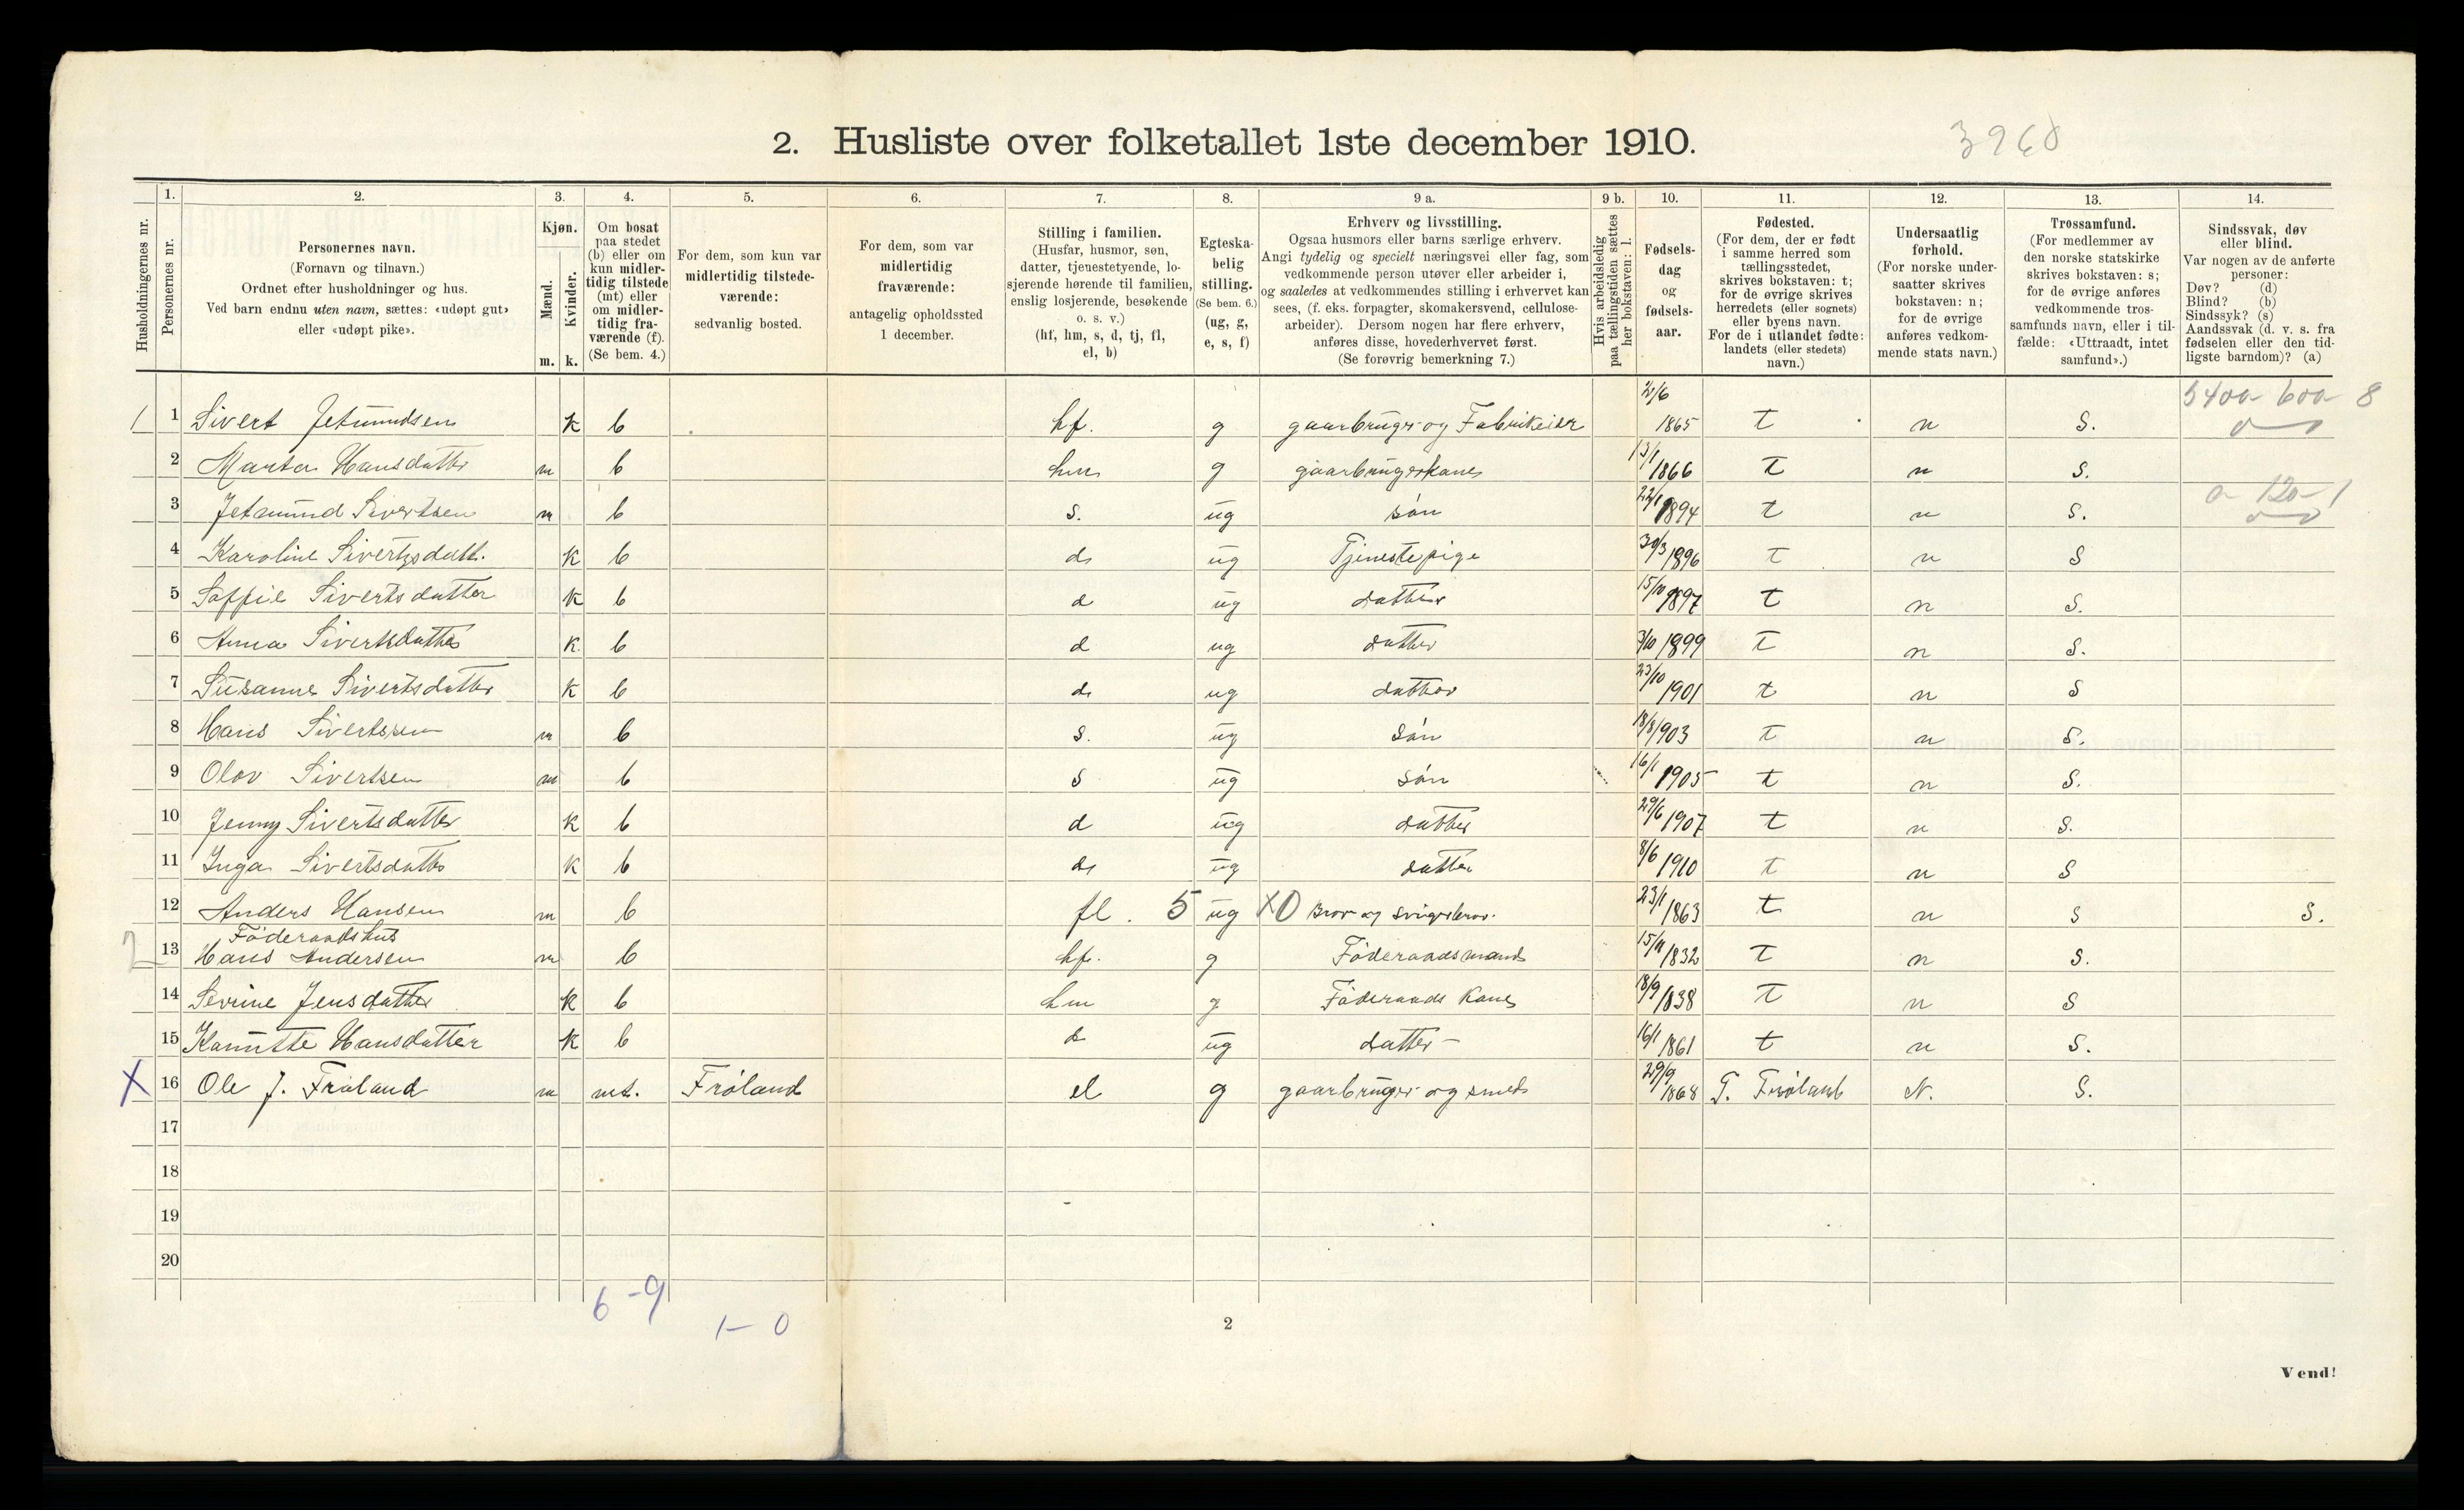 2. Husliste over folketallet 1ste december 1910.
3960
1. 2. 3. 4. 5. 6. 7. 8. 9 a. 9 b. 10. 11. 12. 13. 14.
Husholdningernes nr.
Personernes nr.
Personernes navn.
(Fornavn og tilnavn.)
Ordnet efter husholdninger og hus.
Ved barn endnu uten navn, sættes: «udøpt gut»
eller «udøpt pike».
Kjøn.
Mænd.
Kvinder.
m. k.
Om bosat
paa stedet
(b) eller om
kun midler-
tidig tilstede
(mt) eller
om midler-
tidig fra-
værende (f).
(Se bem. 4.)
For dem, som kun var
midlertidig tilstede-
værende:
sedvanlig bosted.
For dem, som var
midlertidig
fraværende:
antagelig opholdssted
1 december.
Stilling i familien.
(Husfar, husmor, søn,
datter, tjenestetyende, lo-
sjerende hørende til familien,
enslig losjerende, besøkende
o. s. v.)
(hf, hm, s, d, tj, fl,
el, b)
Egteska-
belig
stilling.
(Se bem. 6.)
(ug, g,
e, s, f)
Erhverv og livsstilling.
Ogsaa husmors eller barns særlige erhverv.
Angi tydelig og specielt næringsvei eller fag, som
vedkommende person utøver eller arbeider i,
og saaledes at vedkommendes stilling i erhvervet kan
sees, (f. eks. forpagter, skomakersvend, cellulose-
arbeider). Dersom nogen har flere erhverv,
anføres disse, hovederhvervet først.
(Se forøvrig bemerkning 7.)
Hvis arbeidsledig
paa tællingstiden sættes
her bokstaven: l.
Fødsels-
dag
og
fødsels-
aar.
Fødested.
(For dem, der er født
i samme herred som
tællingsstedet,
skrives bokstaven: t;
for de øvrige skrives
herredets (eller sognets)
eller byens navn.
For de i utlandet fødte:
landets (eller stedets)
navn.)
Undersaatlig
forhold.
(For norske under-
saatter skrives
bokstaven: n;
for de øvrige
anføres vedkom-
mende stats navn.)
Trossamfund.
(For medlemmer av
den norske statskirke
skrives bokstaven: s;
for de øvrige anføres
vedkommende tros-
samfunds navn, eller i til-
fælde: «Uttraadt, intet
samfund».)
Sindssvak, døv
eller blind.
Var nogen av de anførte
personer:
Døv? (d)
Blind? (b)
Sindssyk? (s)
Aandssvak (d. v. s. fra
fødselen eller den tid-
ligste barndom)? (a)
1 1 Sivert Jetmundsen k b hf. g gaarbruger og Fabrikeier 2/6 1865 t n S.
2 Marta Hansdatter m b hm g gaarbrugerkone 13/1 1866 t n S.
3 Jetmund Sivertsen m b s. ug søn 22/1 1894 t n S.
4 Karoline Sivertsdatt. k b d ug Tjenestepige 30/3 1896 t n S
5 Soffie Sivertsdatter k b d ug datter 15/10 1897 t n S.
6 Anna Sivertsdatter k. b d ug datter 3/10 1899 t n S.
7 Susanne Sivertsdatter k b d ug datter 23/10 1901 t n S
8 Hans Sivertsen m b S. ug Søn 18/8 1903 t n S.
9 Olov Sivertsen m b S ug Søn 16/1 1905 t n S.
10 Jenny Sivertsdatter k b d ug datter 29/6 1907 t n S.
11 Inga Sivertsdatter k b d ug datter 8/6 1910 t n S
12 Anders Hansen m b fl. 5 ug X0 Bror og Svigerbror. 23/1 1863 t n S S.
Föderaadshus
2 13 Hans Andersen m b hf. g Föderaadsmand 15/11 1832 t n S.
14 Sevrine Jensdatter k b hm g Föderaads Kone 18/9 1838 t n S
15 Hansdatter k b d ug datter - 16/1 1861 t n S.
X 16 Ole J. Fröland m mt. Fröland el g gaarbruger og smed 29/9 1868 T. Fröland N. S.
17
18
19
20
6-9
1-0
2
Vend!